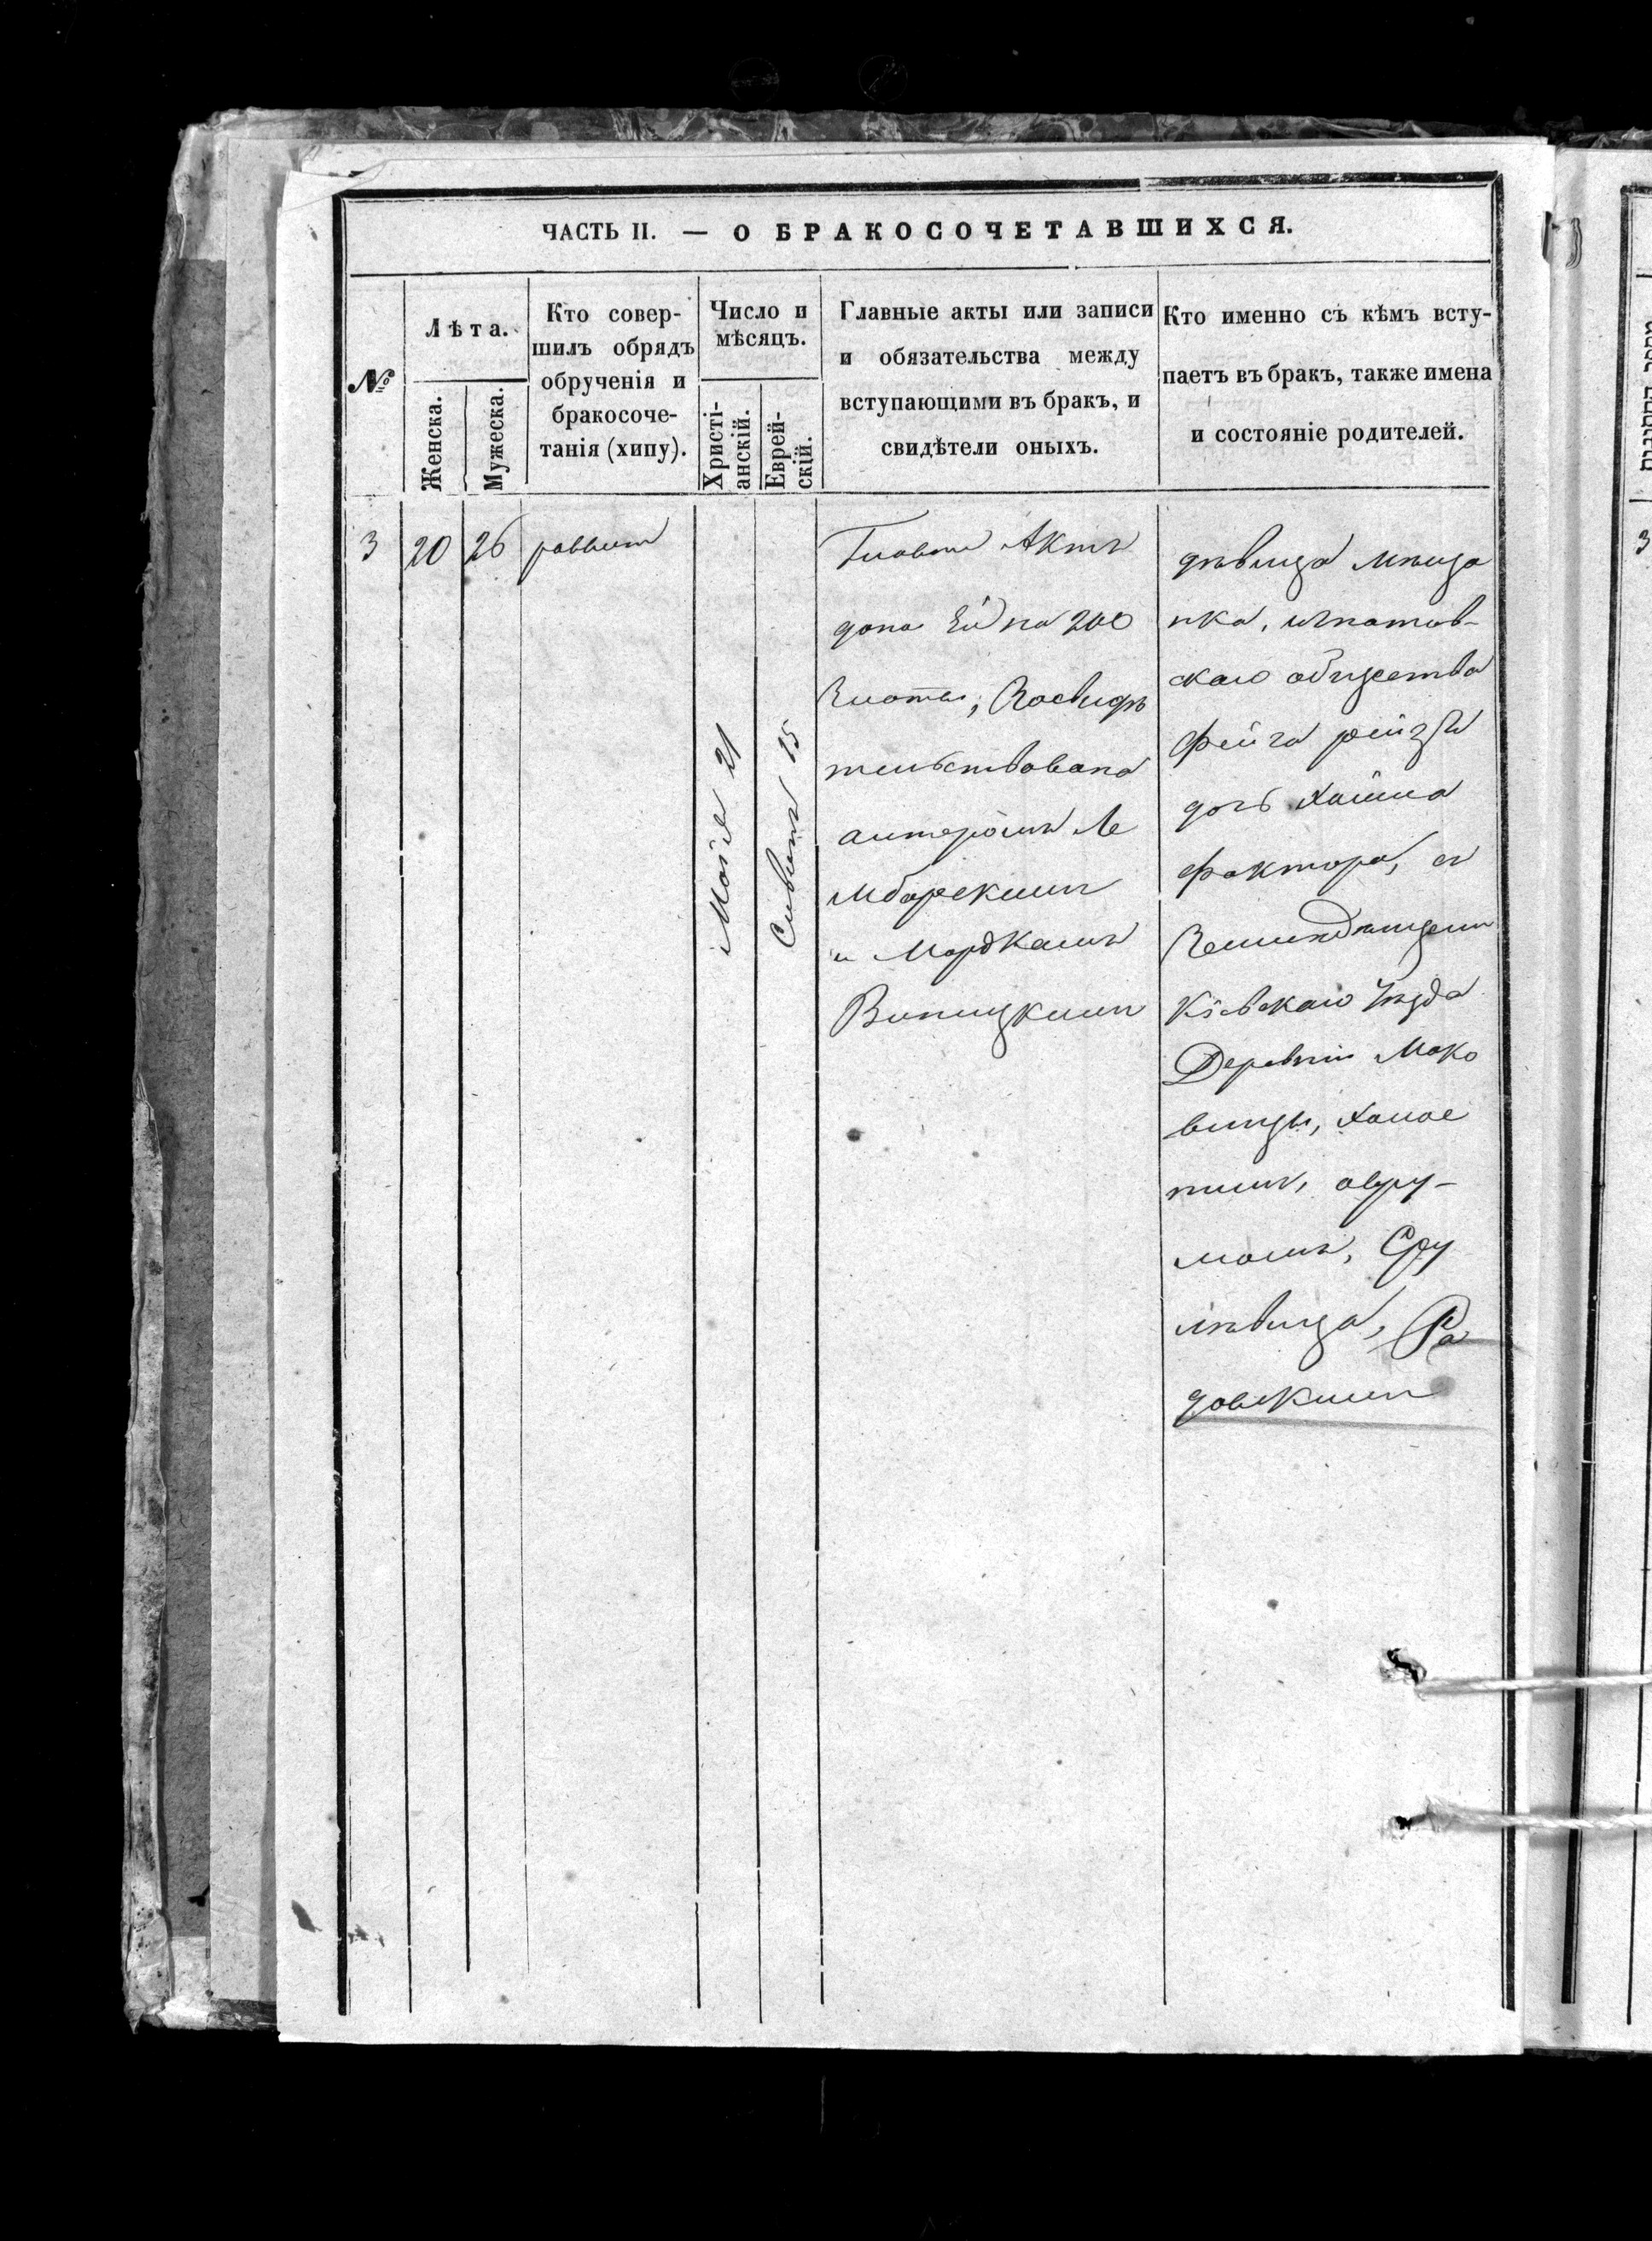 ЧАСТЬ II. — О БРАКОСОЧЕТАВШИХСЯ.
№
Лѣта.
Женска.
Мужеска.
Кто совер-
шилъ обрядъ
обрученія и
бракосоче-
танія (хипу).
Число и
мѣсяцъ.
Христі-
анскій.
Еврей-
скій.
Главные акты или записи
и обязательства между
вступающими въ бракъ, и
свидѣтели оныхъ.
Кто именно съ кѣмъ всту-
паетъ въ бракъ, также имена
и состояніе родителей.
3
20
26
раввин
Маія 21
Сивенъ 15
Актъ
на 200
злоты, Засвидѣ
тельствована
Ле
мбарскимъ
и Мордкамъ
Виницкимъ
дѣвица мѣща
нка, игнатов-
скаго общества
Фейга рейзя
дочь хаима
фактора, съ
Кіевскаго Уѣзда
Деревни Мако
вищи, ханое
авру-
момъ, Сру
лѣвича, Ра
довскимъ
3